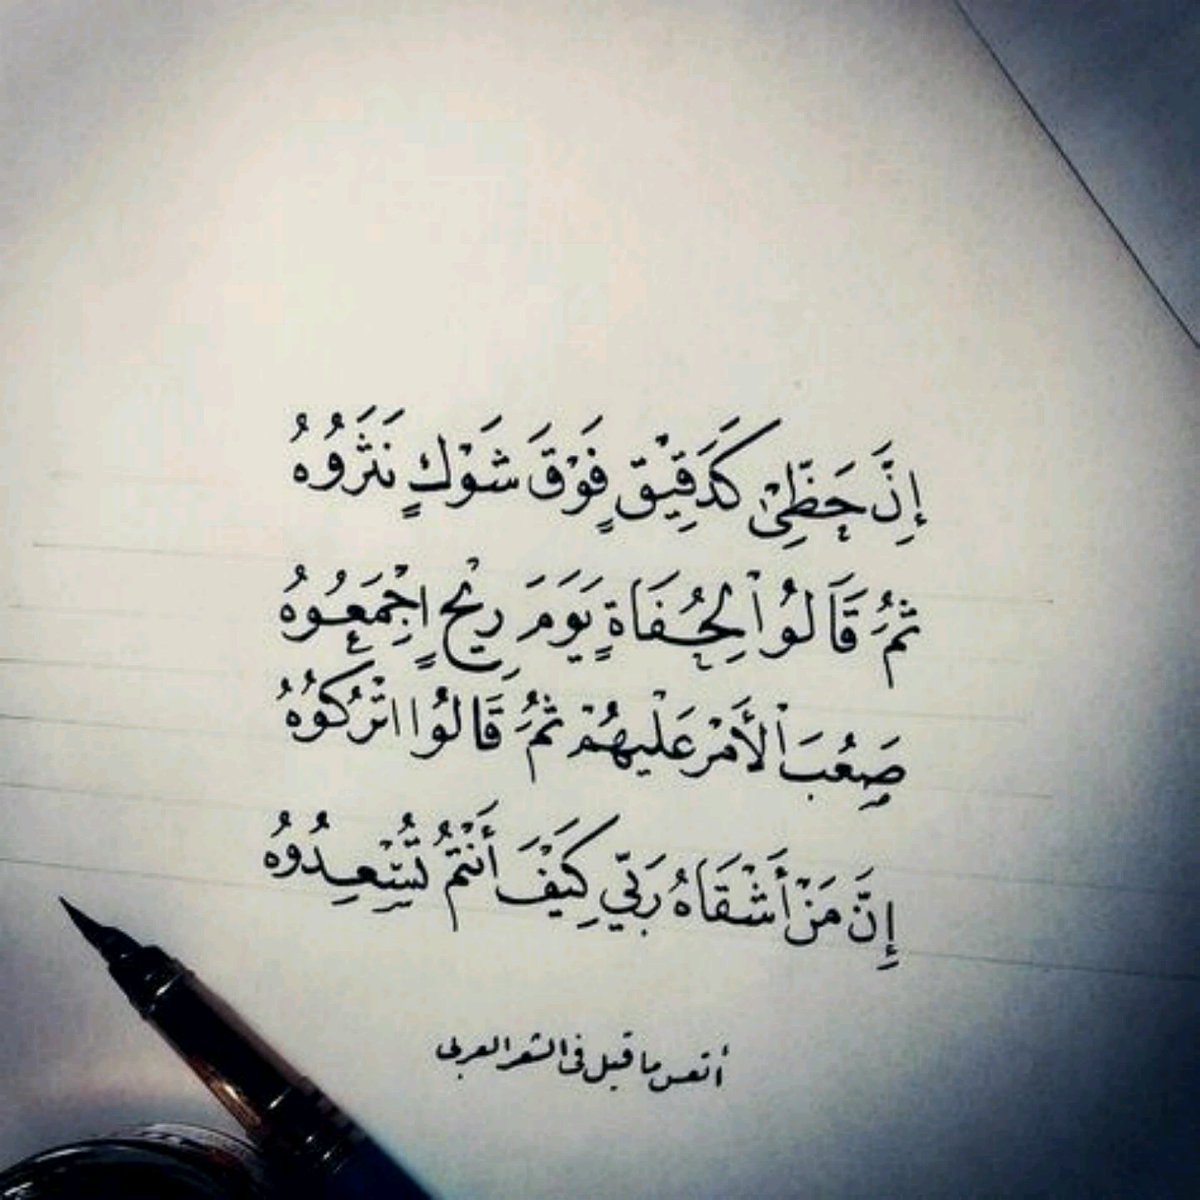 إِنَّ حَظِّيْ كَدَقِيْقٍ فَوْقَ شَوْكٍ نَثَرُوهُ
ثُمَّ قَالُوْا لِحُفَاةٍ يَوْمَ رِيْحٍ اِجْمَعُوهُ
صَعُبَ الْأَمْرُ عَلَيْهُمْ ثُمَّ قَالُوْا اتْرُكُوُهُ
إِنَّ مَنْ أَشْقَاهُ رَبِّي كَيْفَ أَنْتُمُ تُسْعِدُوُهُ
أتعس ما قيل في الشعر العربي